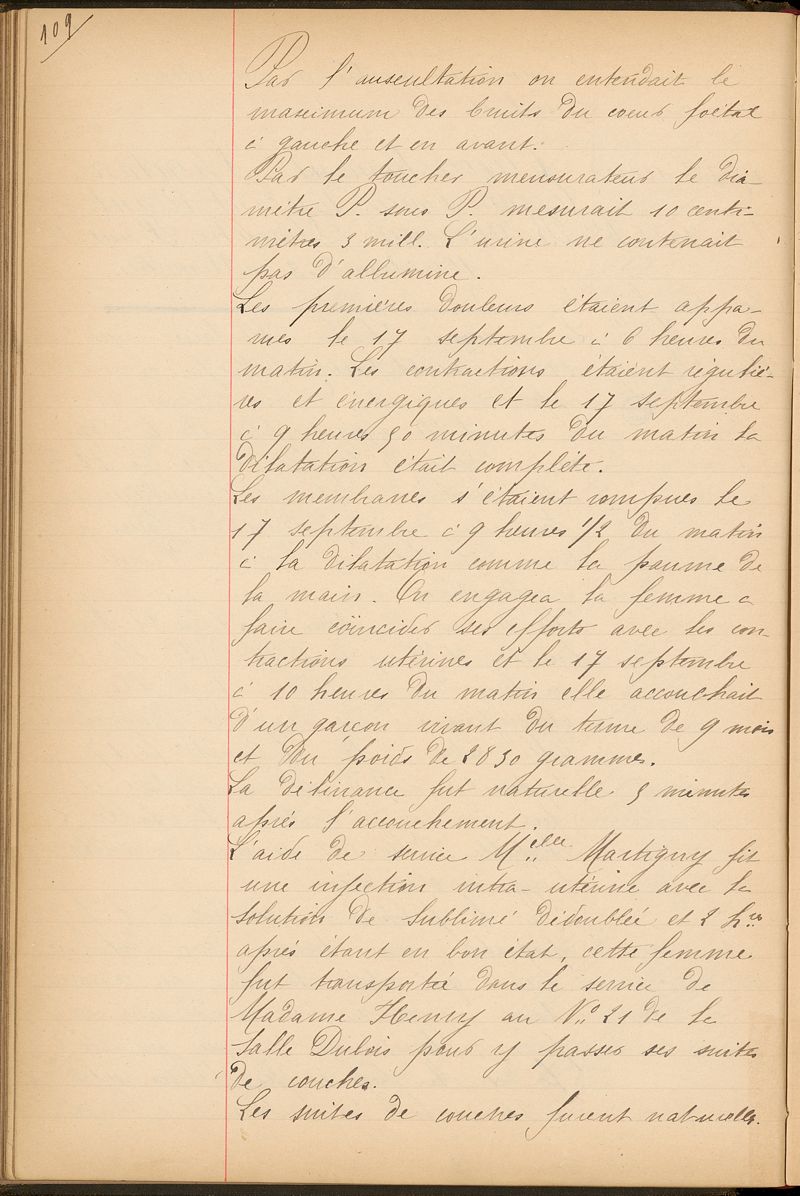 109
Par l'auscultation on entendait le
maximum des bruits du coeur foetal
à gauche et en avant.
Par le toucher mensurateur le dia-
mètre P. sous P. mesurait 10 centi-
mètres 5 mill. L'urine ne contenait
pas d'albumine.
Les premières douleurs étaient appa-
rues le 17 septembre à 6 heures du
matin. Les contractions étaient réguliè-
res et énergiques et le 17 septembre
à 9 heures 50 minutes du matin la
dilatation était complète.
Les membranes s'étaient rompues le
17 septembre à 9 heures 1/2 du matin
à la dilatation comme la paume de
la main. On engagea la femme à
faire coïncider ses efforts avec les con-
tractions utérines et le 17 septembre
à 10 heures du matin elle accouchait
d'un garçon vivant du terme de 9 mois
et du poids de 2850 grammes.
La délivrance fut naturelle 5 minutes
après l'accouchement.
L'aide de service Melle Martigny fit
une injection intra-utérine avec la
solution de sublimé dédoublée et 2 hres
après étant en bon état, cette femme
fut transportée dans le service de
Madame Henry au No 21 de la
Salle Dubois pour y passer ses suites
de couches.
Les suites de couches furent naturelles.